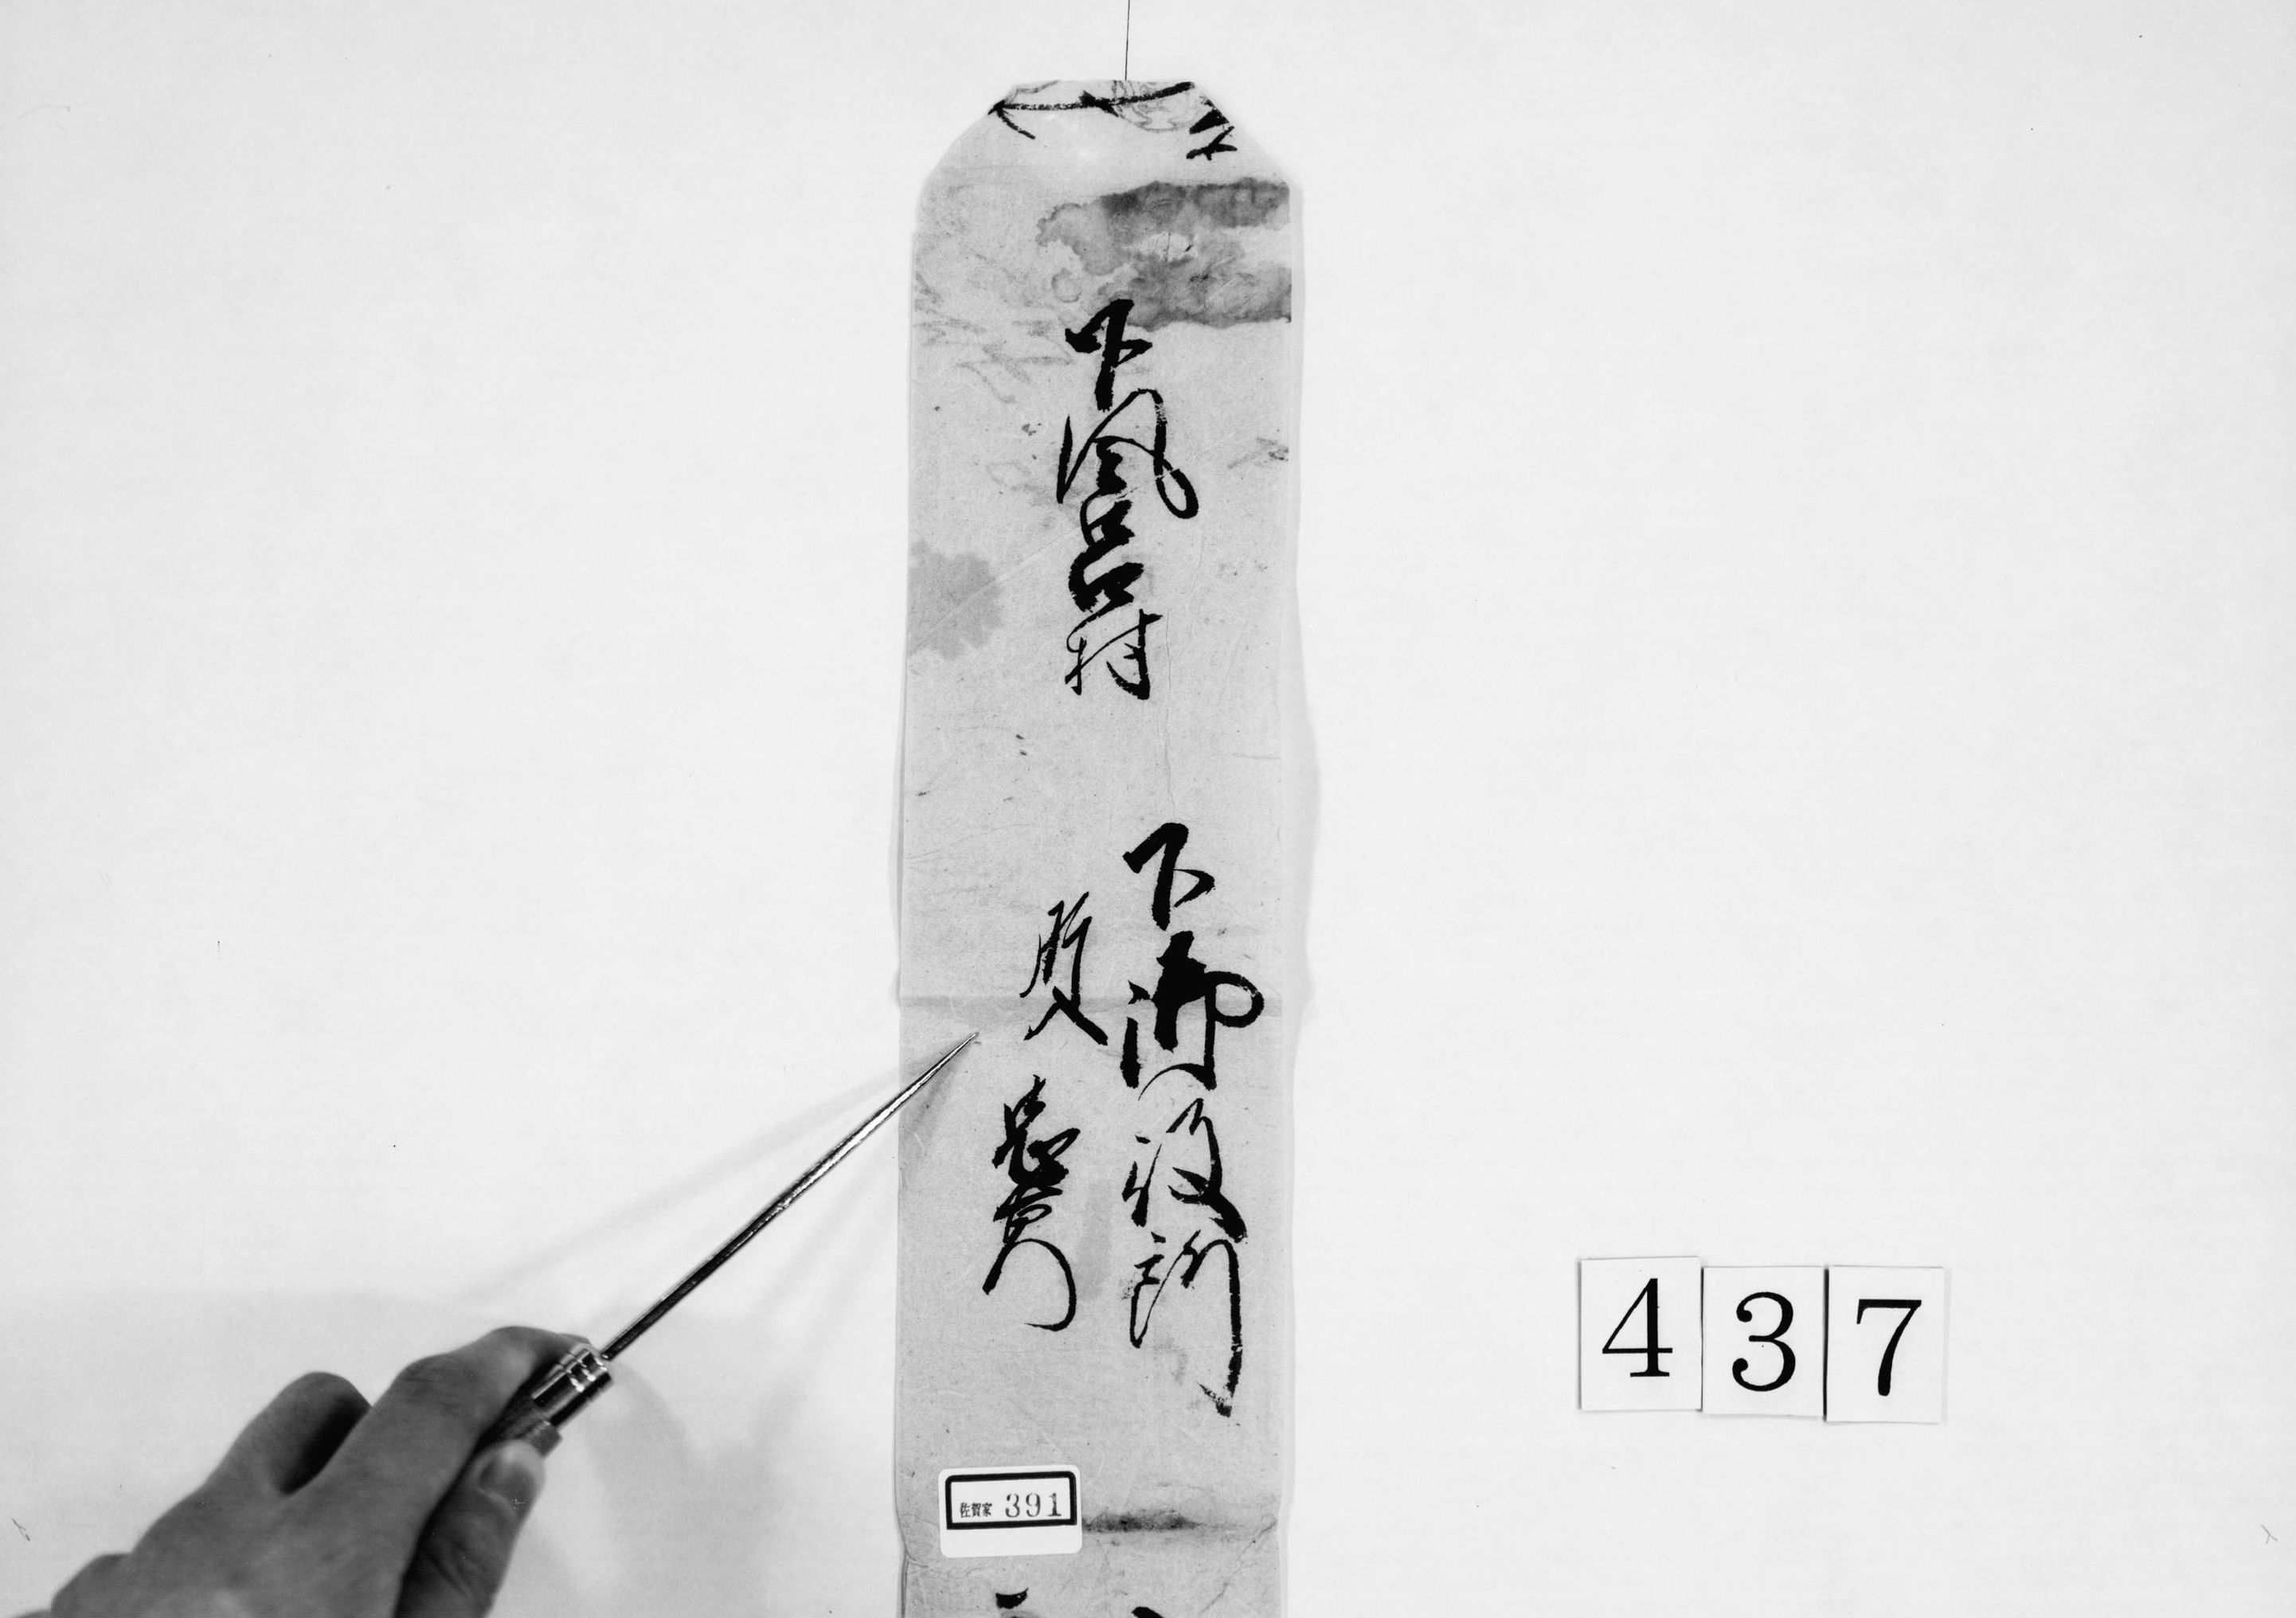 下風呂村
下御役所
忠右衛門
佐賀家 391
437